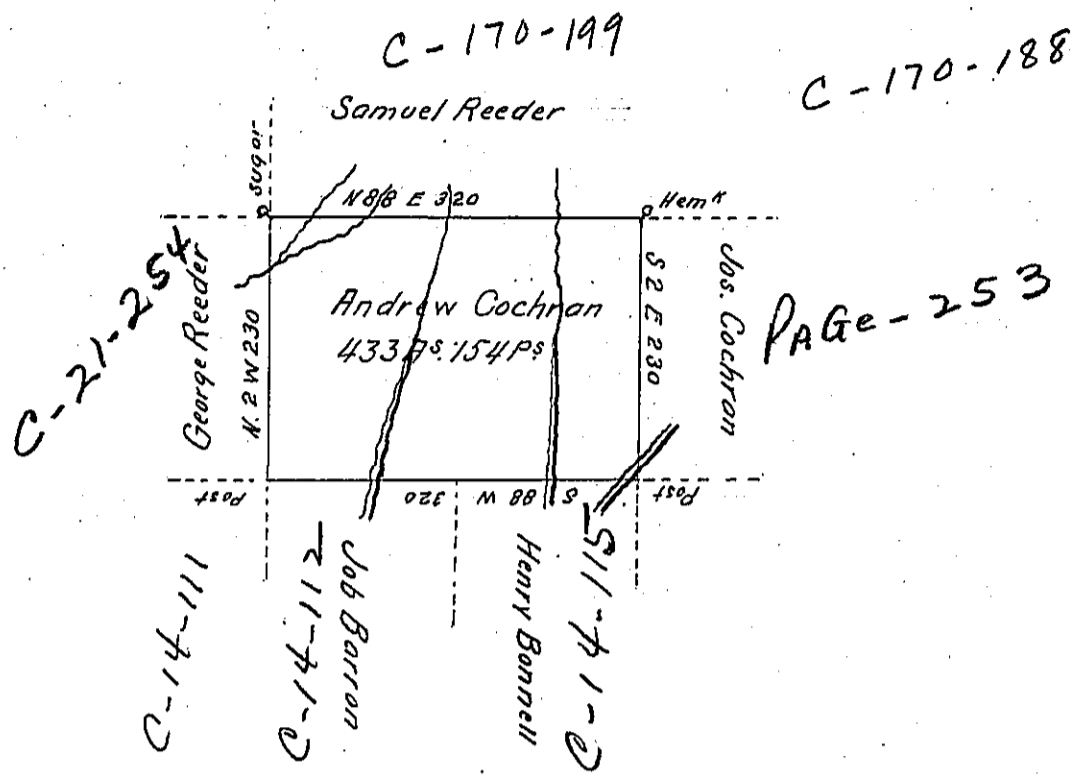 C-170-199
C-170-188
Samuel Reeder
Sugar
N 88 E 320
Hemk
C-21-254
George Reeder
N. 2 W 230
Andrew Cochran
433 As. 154 Ps
S 2 E 230
Jos. Cochran
PAGe-253
Post
S 88 W 320
Post
C-14-111
C-14-112
Job Barron
Henry Bonnell
C-14-115